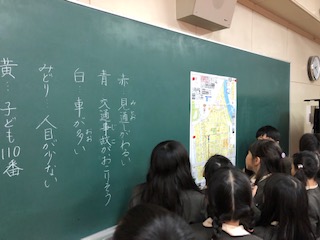 赤 見通しがわるい
みとお
青 交通事故がおこりそう
じこ
白 車が多い
おお
みどり 人目が少ない
黄… 子ども110番